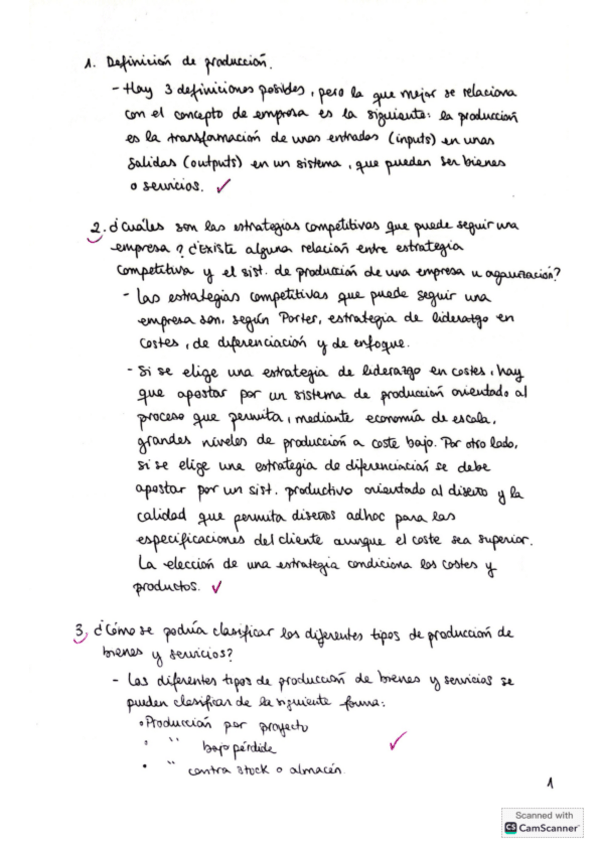 1. Definición de producción.
- Hay 3 definiciones posibles, pero la que mejor se relaciona
con el concepto de empresa es la siguiente: la producción
es la transformación de unas entradas (inputs) en unas
salidas (outputs) en un sistema, que pueden ser bienes
o servicios. ✓
2. ¿Cuáles son las estrategias competitivas que puede seguir una
empresa? ¿Existe alguna relación entre estrategia
competitiva y el sist. de producción de una empresa u organización?
- Las estrategias competitivas que puede seguir una
empresa son, según Porter, estrategia de liderazgo en
costes, de diferenciación y de enfoque.
- Si se elige una estrategia de liderazgo en costes, hay
que apostar por un sistema de producción orientado al
proceso que permita, mediante economía de escala,
grandes niveles de producción a coste bajo. Por otro lado,
si se elige una estrategia de diferenciación se debe
apostar por un sist. productivo orientado al diseño y la
calidad que permita diseños adhoc para las
especificaciones del cliente aunque el coste sea superior.
La elección de una estrategia condiciona los costes y
productos. ✓
3. ¿Cómo se podría clasificar los diferentes tipos de producción de
bienes y servicios?
- Los diferentes tipos de producción de bienes y servicios se
pueden clasificar de la siguiente forma:
• Producción por proyecto
• " bajo pérdide ✓
• " contra stock o almacén.
1
Scanned with
CS CamScanner